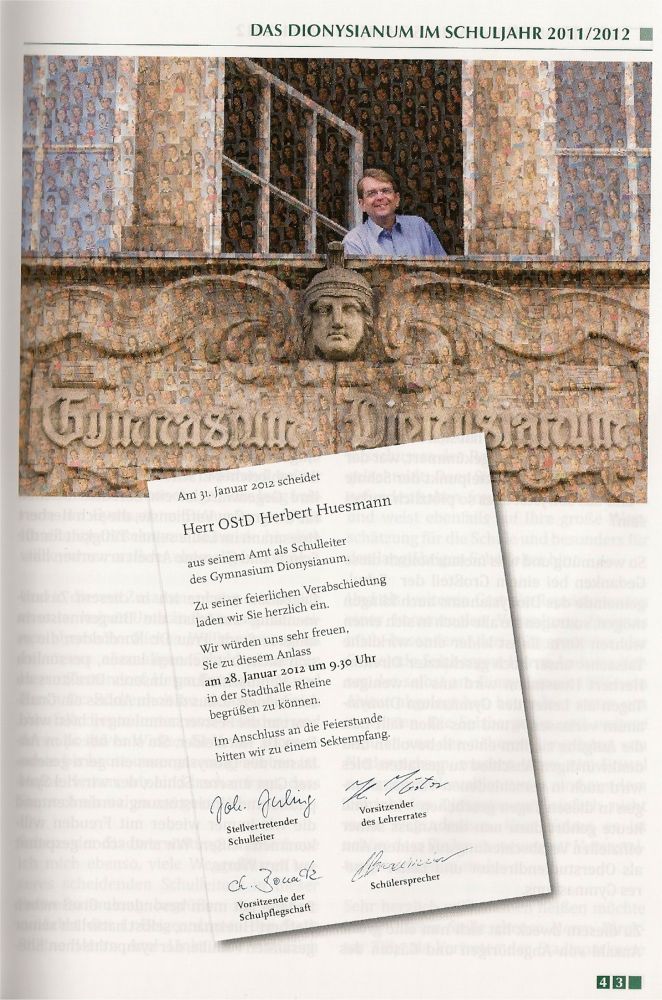 DAS DIONYSIANUM IM SCHULJAHR 2011/2012
Gymnasium Dionysianum
Am 31. Januar 2012 scheidet
Herr OStD Herbert Huesmann
aus seinem Amt als Schulleiter
des Gymnasium Dionysianum.
Zu seiner feierlichen Verabschiedung
laden wir Sie herzlich ein.
Wir würden uns sehr freuen,
Sie zu diesem Anlass
am 28. Januar 2012 um 9.30 Uhr
in der Stadthalle Rheine
begrüßen zu können.
Im Anschluss an die Feierstunde
bitten wir zu einem Sektempfang.
Stellvertretender
Schulleiter
Vorsitzender
des Lehrerrates
Vorsitzende der
Schulpflegschaft
Schülersprecher
43